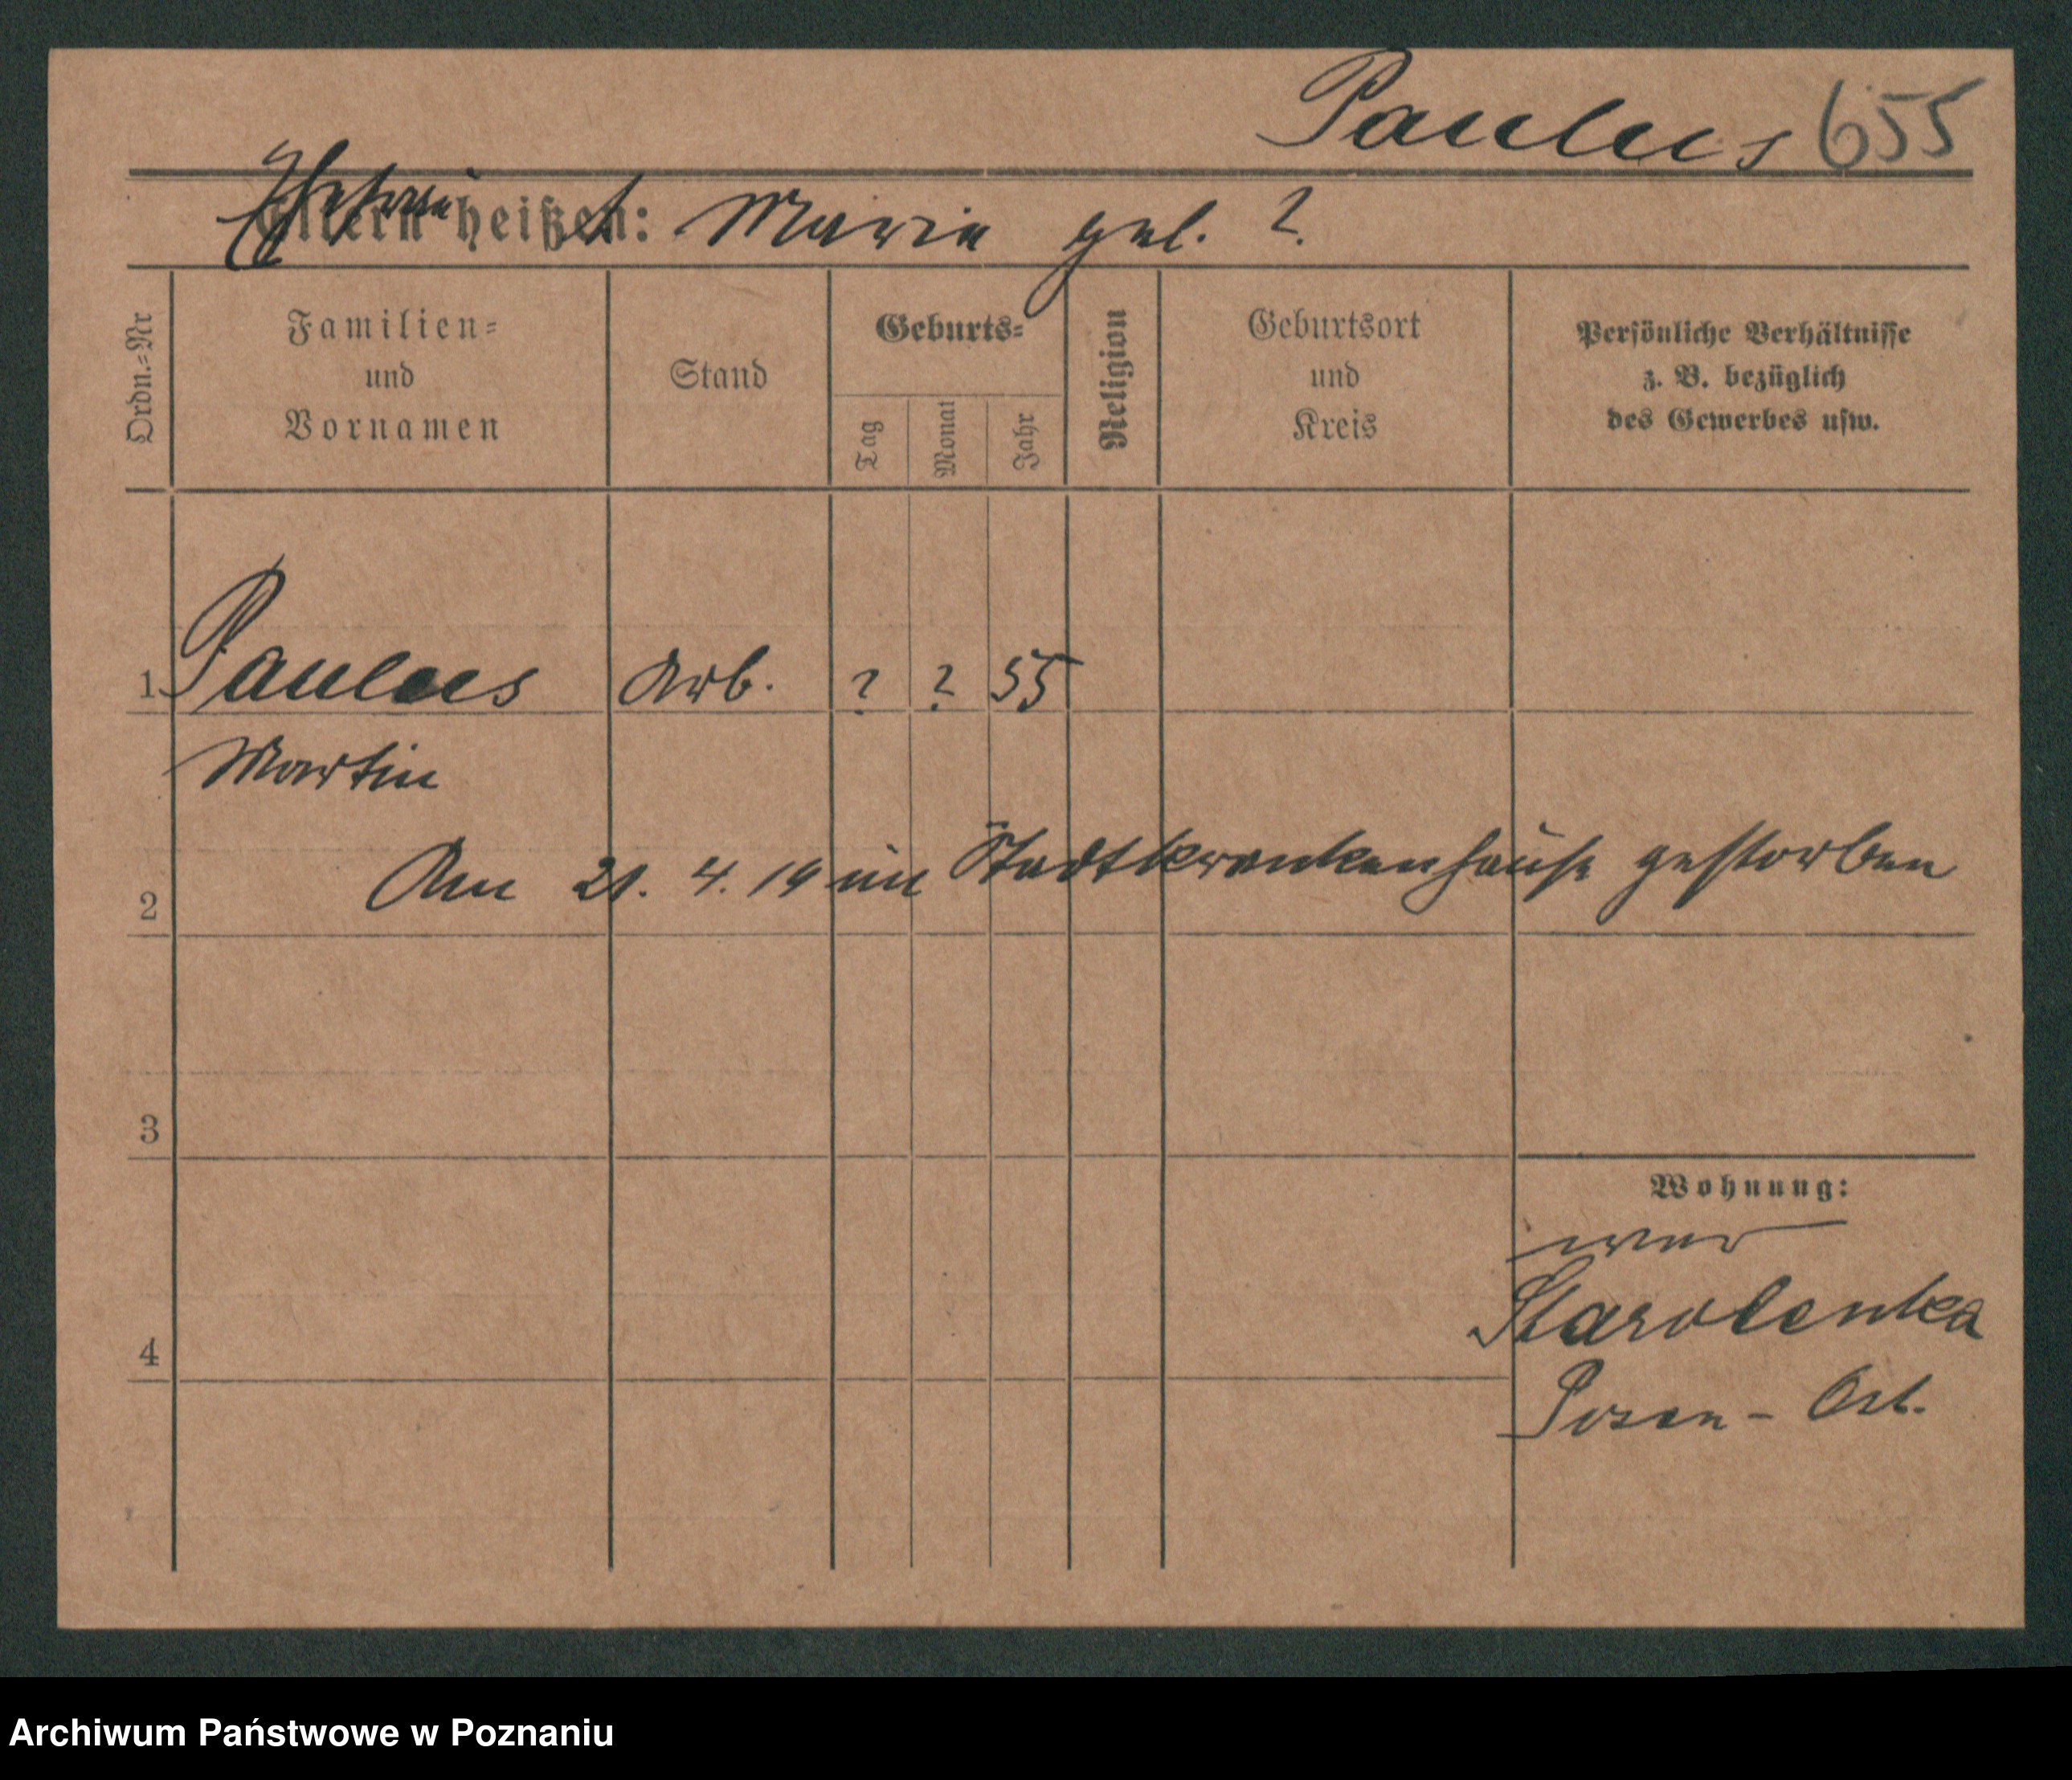 Paulus 655
Eltern heißen:
Ehefrau † Maria geb. ?
Ordn.-Nr
Familien-
und
Vornamen
Stand
Geburts-
Tag
Monat
Jahr
Religion
Geburtsort
und
Kreis
Persönliche Verhältnisse
z. B. bezüglich
des Gewerbes usw.
1 Paulus Arb. ? ? 55
Martin
Am 21. 4. 19 im Stadtkrankenhause gestorben
2
3
Wohnung:
war
Starolenka
4
Posen - Ost.
Archiwum Państwowe w Poznaniu